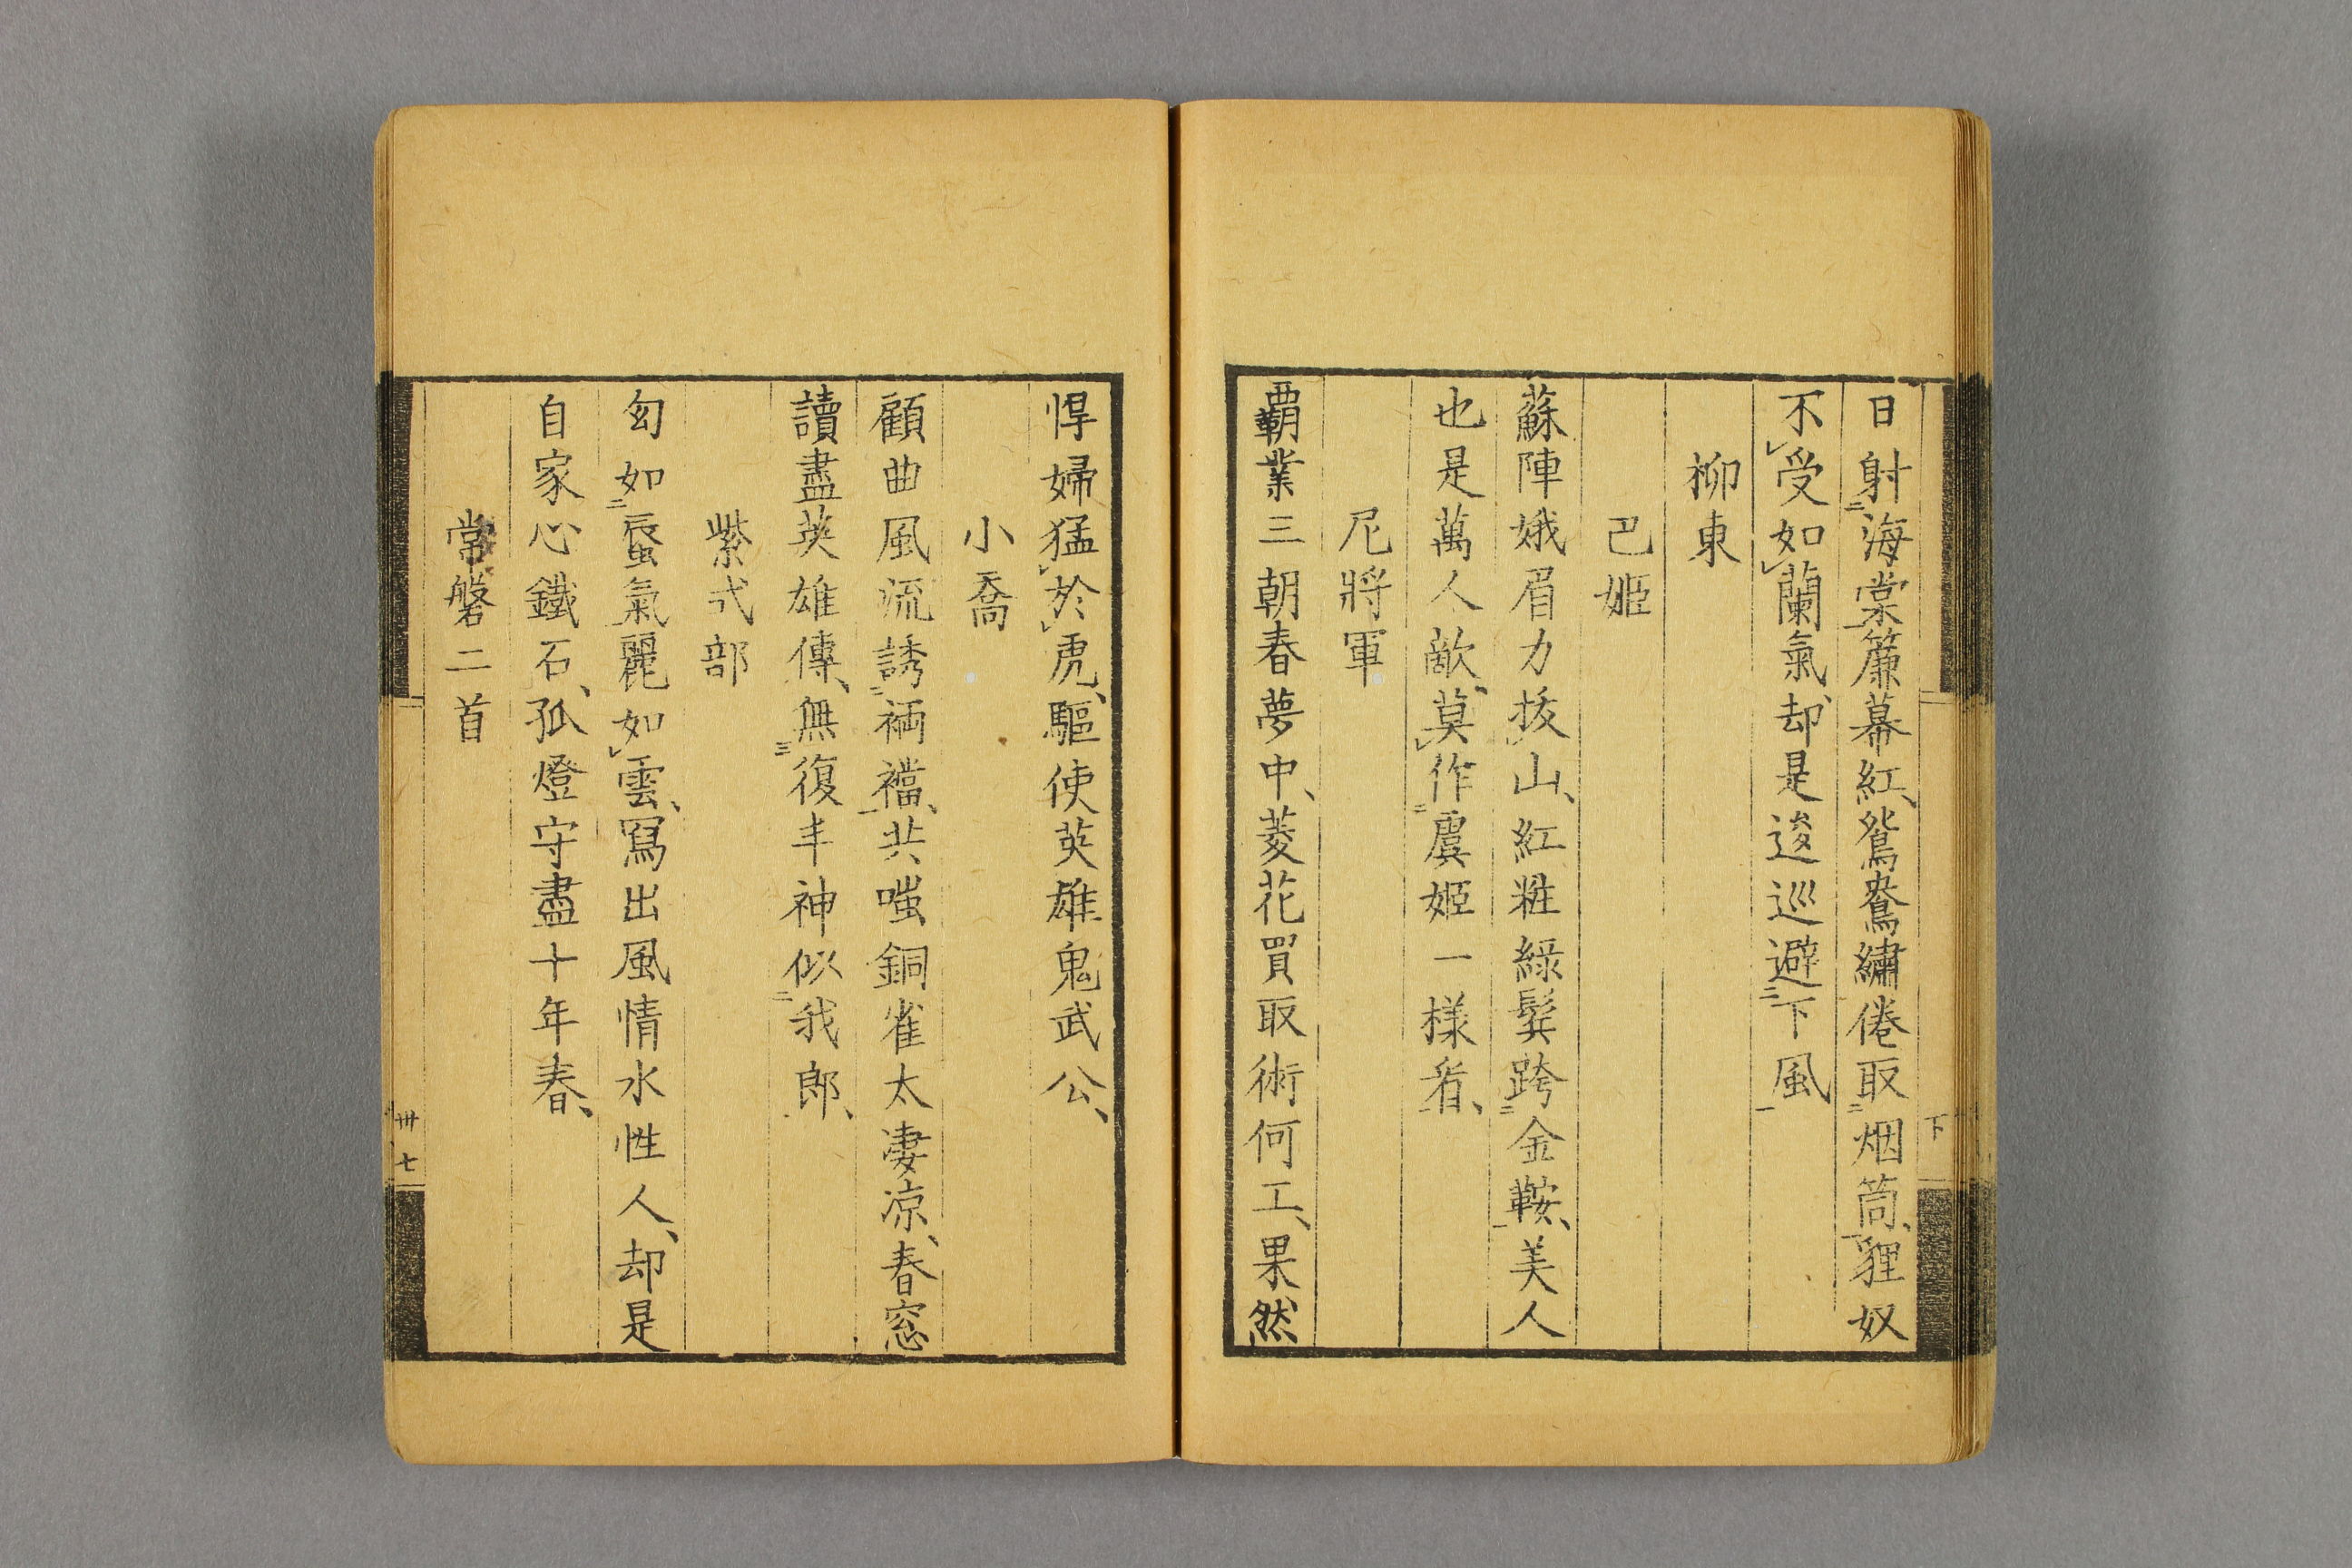 日射海棠簾幕紅、鴛鴦繡倦取烟筒、狸奴
不受如蘭氣、却是逡巡避下風
柳東
巴姬
蘇陣娥眉力拔山、紅粧綠鬢跨金鞍、美人
也是萬人敵、莫作虞姬一樣看、
尼將軍
覇業三朝春夢中、菱花買取術何工、果然
下
悍婦猛於虎、驅使英雄鬼武公、
小喬
顧曲風流誘裲襠、共嗤銅雀太凄凉、春窓
讀盡英雄傳、無復丰神似我郎、
紫式部
幻如蜃氣麗如雲、寫出風情水性人、却是
自家心鐵石、孤燈守盡十年春、
常磐二首
卅七